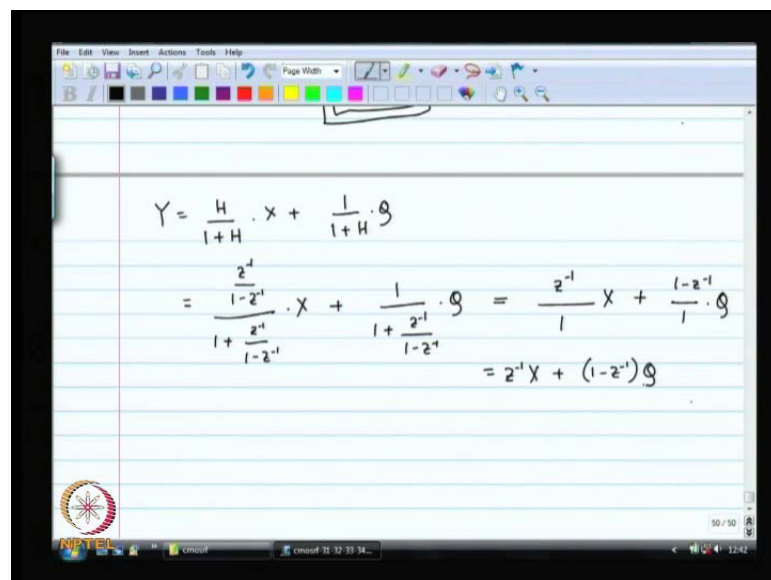 File Edit View Insert Actions Tools Help
Page Width
B I
Y = H/(1+H) . X + 1/(1+H) . Q
= (z⁻¹/(1-z⁻¹))/(1 + z⁻¹/(1-z⁻¹)) . X + 1/(1 + z⁻¹/(1-z⁻¹)) . Q = z⁻¹/1 X + (1-z⁻¹)/1 . Q
= z⁻¹X + (1-z⁻¹)Q
50 / 50
NPTEL
cmosrf
cmosrf-31-32-33-34...
12:42